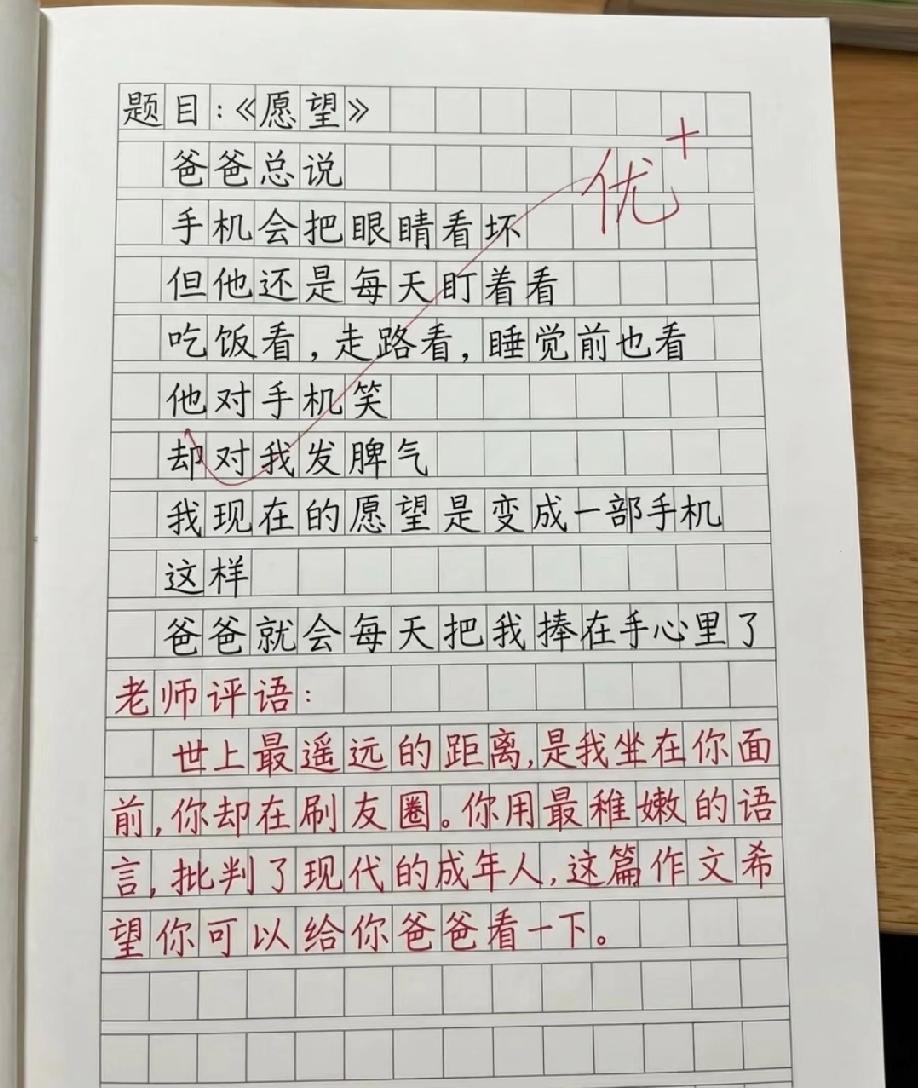 题目:《愿望》
优+
爸爸总说
手机会把眼睛看坏
但他还是每天盯着看
吃饭看,走路看,睡觉前也看
他对手机笑
却对我发脾气
我现在的愿望是变成一部手机
这样
爸爸就会每天把我捧在手心里了
老师评语:
世上最遥远的距离,是我坐在你面
前,你却在刷友圈。你用最稚嫩的语
言,批判了现代的成年人,这篇作文希
望你可以给你爸爸看一下。